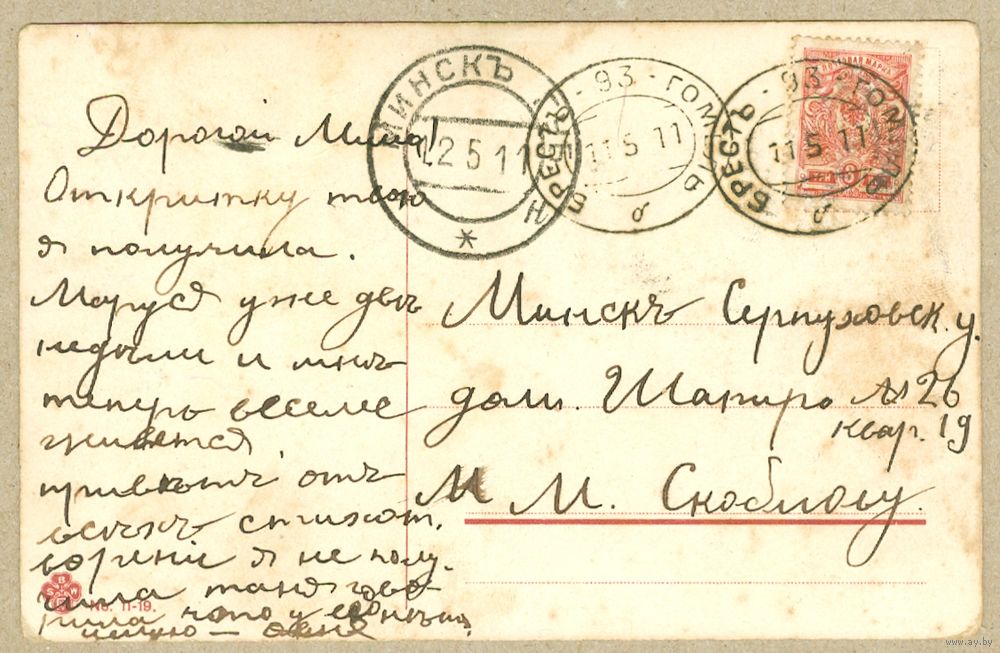 Дорогой Миша!
Открытку твою
я получила.
Маруся уже двѣ
недѣли и мнѣ
теперь веселее
живется
привѣтъ отъ
всѣхъ стихот.
ворение я не полу.
чила таня гово
рила что у
МИНСКЪ
12 5 11
БРЕСТЪ - 93 - ГОМЕЛЬ
11 5 11
б
БРЕСТЪ - 93 - ГОМЕЛЬ
11 5 11
б
ПОЧТОВАЯ МАРКА
Минскъ Серпуховск. у.
дом. Шапиро № 26
квар. 19
М М. Скоблову.
B
S W
No. 11-19.
www.ay.by